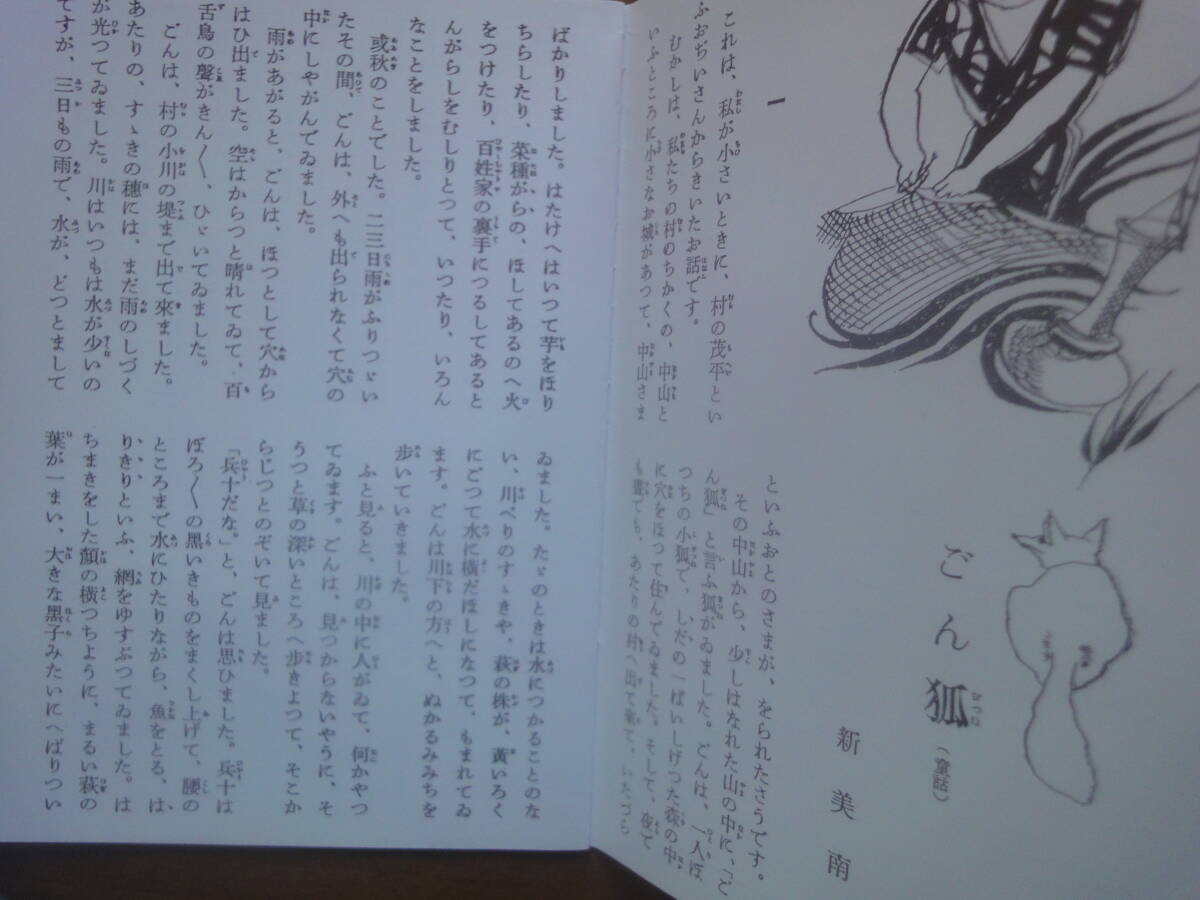 ごん狐（童話）
新美南
一
これは、私が小さいときに、村の茂平とい
ふおぢいさんからきいたお話です。
むかしは、私たちの村のちかくの、中山と
いふところに小さなお城があつて、中山さま
といふおとのさまが、をられたさうです。
その中山から、少しはなれた山の中に、「ご
ん狐」と言ふ狐がゐました。ごんは、一人ぼ
つちの小狐で、しだの一ぱいしげつた森の中
に穴をほつて住んでゐました。そして、夜で
も晝でも、あたりの村へ出て來て、いたづら
ばかりしました。はたけへはいつて芋をほり
ちらしたり、菜種がらの、ほしてあるのへ火
をつけたり、百姓家の裏手につるしてあると
んがらしをむしりとつて、いつたり、いろん
なことをしました。
或秋のことでした。二三日雨がふりつゞい
たその間、ごんは、外へも出られなくて穴の
中にしやがんでゐました。
雨があがると、ごんは、ほつとして穴から
はひ出ました。空はからつと晴れてゐて、百
舌鳥の聲がきん／＼、ひゞいてゐました。
ごんは、村の小川の堤まで出て來ました。
あたりの、すゝきの穗には、まだ雨のしづく
が光つてゐました。川はいつもは水が少いの
ですが、三日もの雨で、水が、どつとまして
ゐました。たゞのときは水につかることのな
い、川べりのすゝきや、萩の株が、黄いろく
にごつて水に横だほしになつて、もまれてゐ
ます。ごんは川下の方へと、ぬかるみみちを
歩いていきました。
ふと見ると、川の中に人がゐて、何かやつ
てゐます。ごんは、見つからないやうに、そ
うつと草の深いところへ歩きよつて、そこか
らじつとのぞいて見ました。
「兵十だな。」と、ごんは思ひました。兵十は
ぼろ／＼の黒いきものをまくし上げて、腰の
ところまで水にひたりながら、魚をとる、は
りきりといふ、網をゆすぶつてゐました。は
ちまきをした顏の横つちように、まるい萩の
葉が一まい、大きな黒子みたいにへばりつい